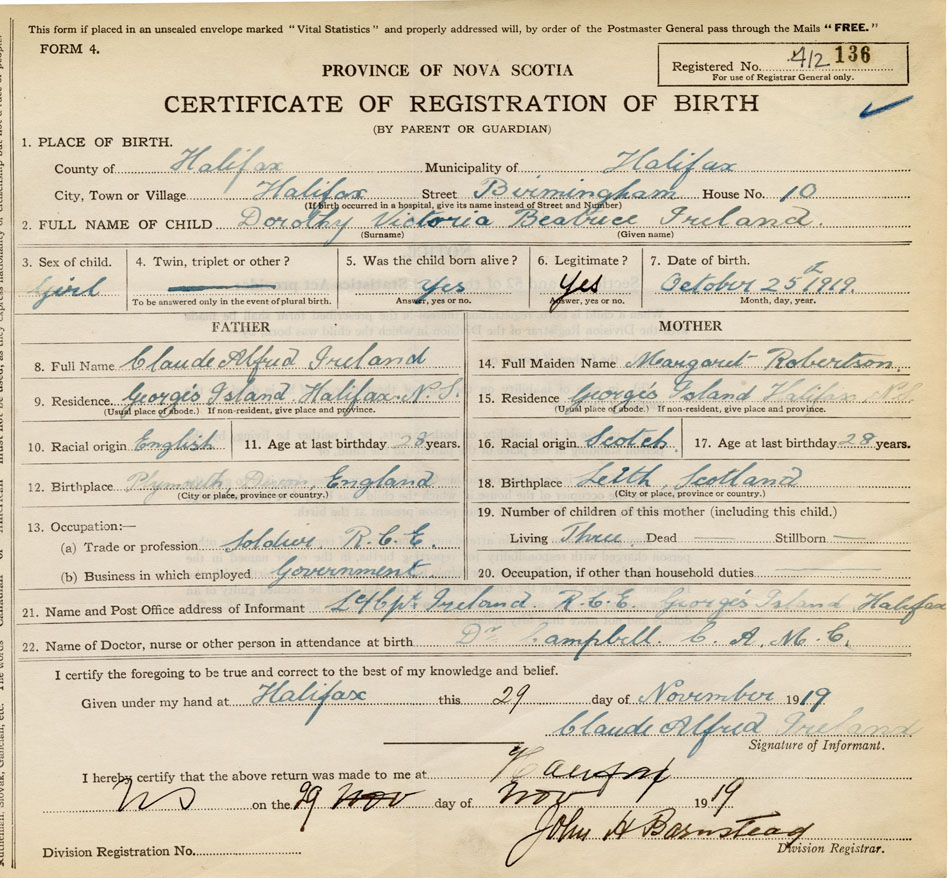 This form if placed in an unsealed envelope marked "Vital Statistics" and properly addressed will, by order of the Postmaster General pass through the Mails "FREE."
FORM 4.
Registered No. 412 136
For use of Registrar General only.
PROVINCE OF NOVA SCOTIA
CERTIFICATE OF REGISTRATION OF BIRTH
(BY PARENT OR GUARDIAN)
1. PLACE OF BIRTH.
County of Halifax Municipality of Halifax
City, Town or Village Halifax Street Birmingham House No. 10
(If birth occurred in a hospital, give its name instead of Street and Number)
2. FULL NAME OF CHILD Dorothy Victoria Beatrice Ireland.
(Surname) (Given name)
3. Sex of child. 4. Twin, triplet or other? 5. Was the child born alive? 6. Legitimate? 7. Date of birth.
Girl Yes Yes October 25th 1919
To be answered only in the event of plural birth. Answer, yes or no. Answer, yes or no. Month, day, year.
FATHER MOTHER
8. Full Name Claude Alfred Ireland 14. Full Maiden Name Margaret Robertson.
9. Residence. George's Island Halifax N.S. 15. Residence George's Island Halifax N.S.
(Usual place of abode.) If non-resident, give place and province. (Usual place of abode.) If non-resident, give place and province.
10. Racial origin English 11. Age at last birthday 28 years. 16. Racial origin Scotch 17. Age at last birthday 28 years.
12. Birthplace Plymouth, Devon, England 18. Birthplace Leith, Scotland
(City or place, province or country.) (City or place, province or country.)
13. Occupation:— 19. Number of children of this mother (including this child.)
(a) Trade or profession Soldier R.C.E. Living Three Dead — Stillborn —
(b) Business in which employed Government. 20. Occupation, if other than household duties
21. Name and Post Office address of Informant L/Cpl. Ireland. R.C.E. George's Island Halifax
22. Name of Doctor, nurse or other person in attendance at birth Dr Campbell. C.A.M.C.
I certify the foregoing to be true and correct to the best of my knowledge and belief.
Given under my hand at Halifax this 29 day of November 1919
Claude Alfred Ireland
Signature of Informant.
I hereby certify that the above return was made to me at Halifax
NS on the 29 Nov day of Nov 1919
John H Barnstead
Division Registration No. Division Registrar.